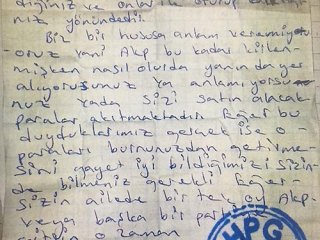 diğiniz ve onlar ile oturup
niz yönündedir.
Biz bir hususa anlam veremiyo
oruz yani Akp bu kadar kirlen-
mişken nasıl olurda yanında yer
alıyorsunuz ya anlamıyorsu
nuz yada sizi satın alacak
paralar akıtmaktadır. Eğer bu
duyduklarımız gerçek ise o-
paraları burnunuzdan getirme-
sini gayet iyi bildiğimizi sizin-
de bilmeniz gerekli Eğer-
sizin ailede bir tek oy Akp-
veya başka bir partiye
o zaman
HPG